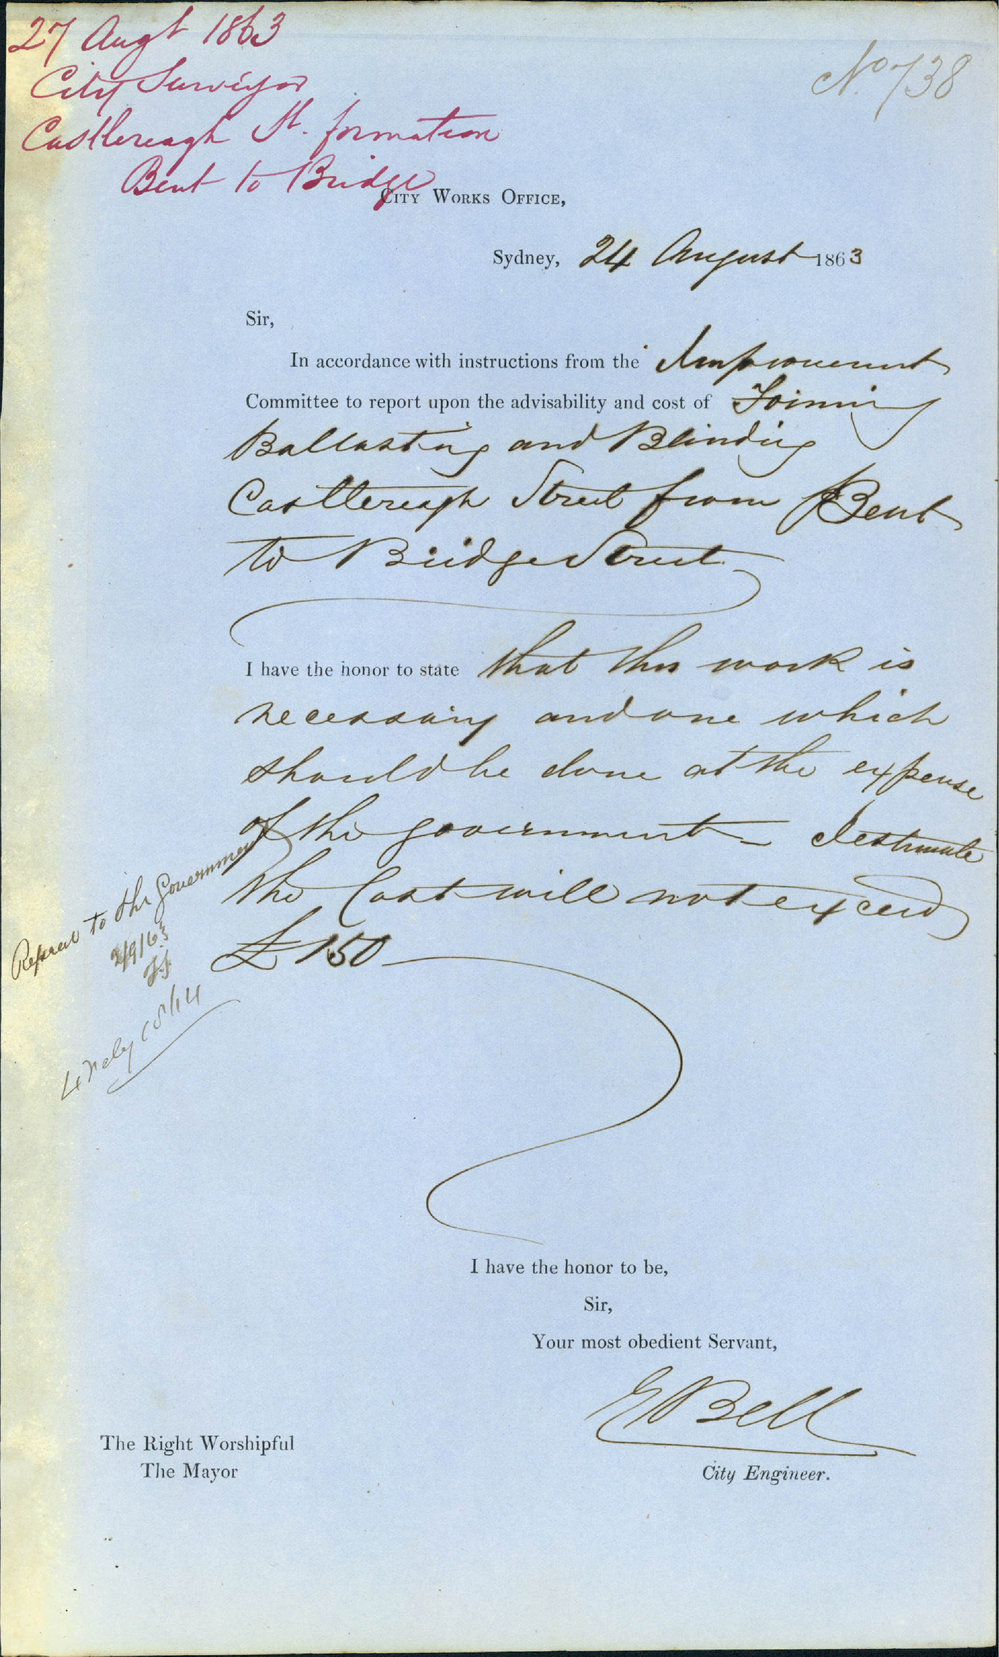 27 Augt 1863
City Surveyor
Castlereagh St. formation
Bent to Bridge
No. 738
CITY WORKS OFFICE,
Sydney, 24 August 1863
Sir,
In accordance with instructions from the Improvement
Committee to report upon the advisability and cost of Forming
Ballasting and Blinding
Castlereagh Street from Bent
to Bridge Street.
I have the honor to state that this work is
necessary and one which
should be done at the expense
of the government – I estimate
the Cost will not exceed
£150
Referred to the Government
2/9/63
I have the honor to be,
Sir,
Your most obedient Servant,
E Bell
City Engineer.
The Right Worshipful
The Mayor